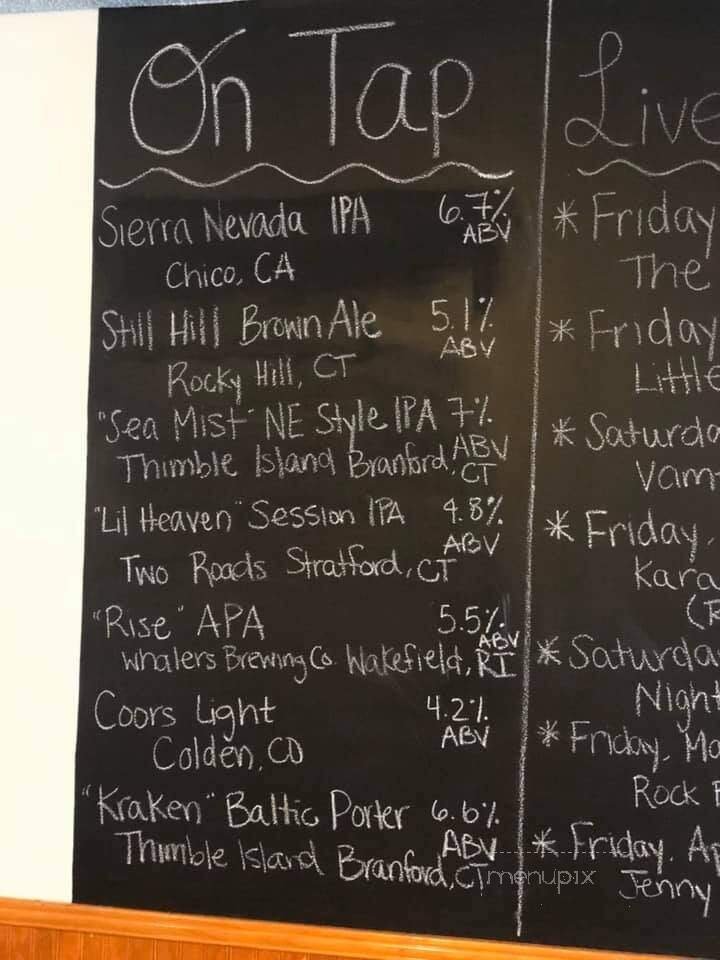 On Tap
Sierra Nevada IPA 6.7%
ABV
Chico, CA
Still Hill Brown Ale 5.1%
ABV
Rocky Hill, CT
"Sea Mist" NE Style IPA 7%
ABV
Thimble Island Branford, CT
"Lil Heaven" Session IPA 4.8%
ABV
Two Roads Stratford, CT
"Rise" APA 5.5%
ABV
Whalers Brewing Co. Wakefield, RI
Coors Light 4.2%
ABV
Colden, CO
"Kraken" Baltic Porter 6.6%
ABV
Thimble Island Branford, CT
Live
* Friday
The
* Friday
Little
* Saturda
Vam
* Friday,
Kara
(R
* Saturda
Night
* Friday, Ma
Rock
* Friday, Ap
Jenny
menupix